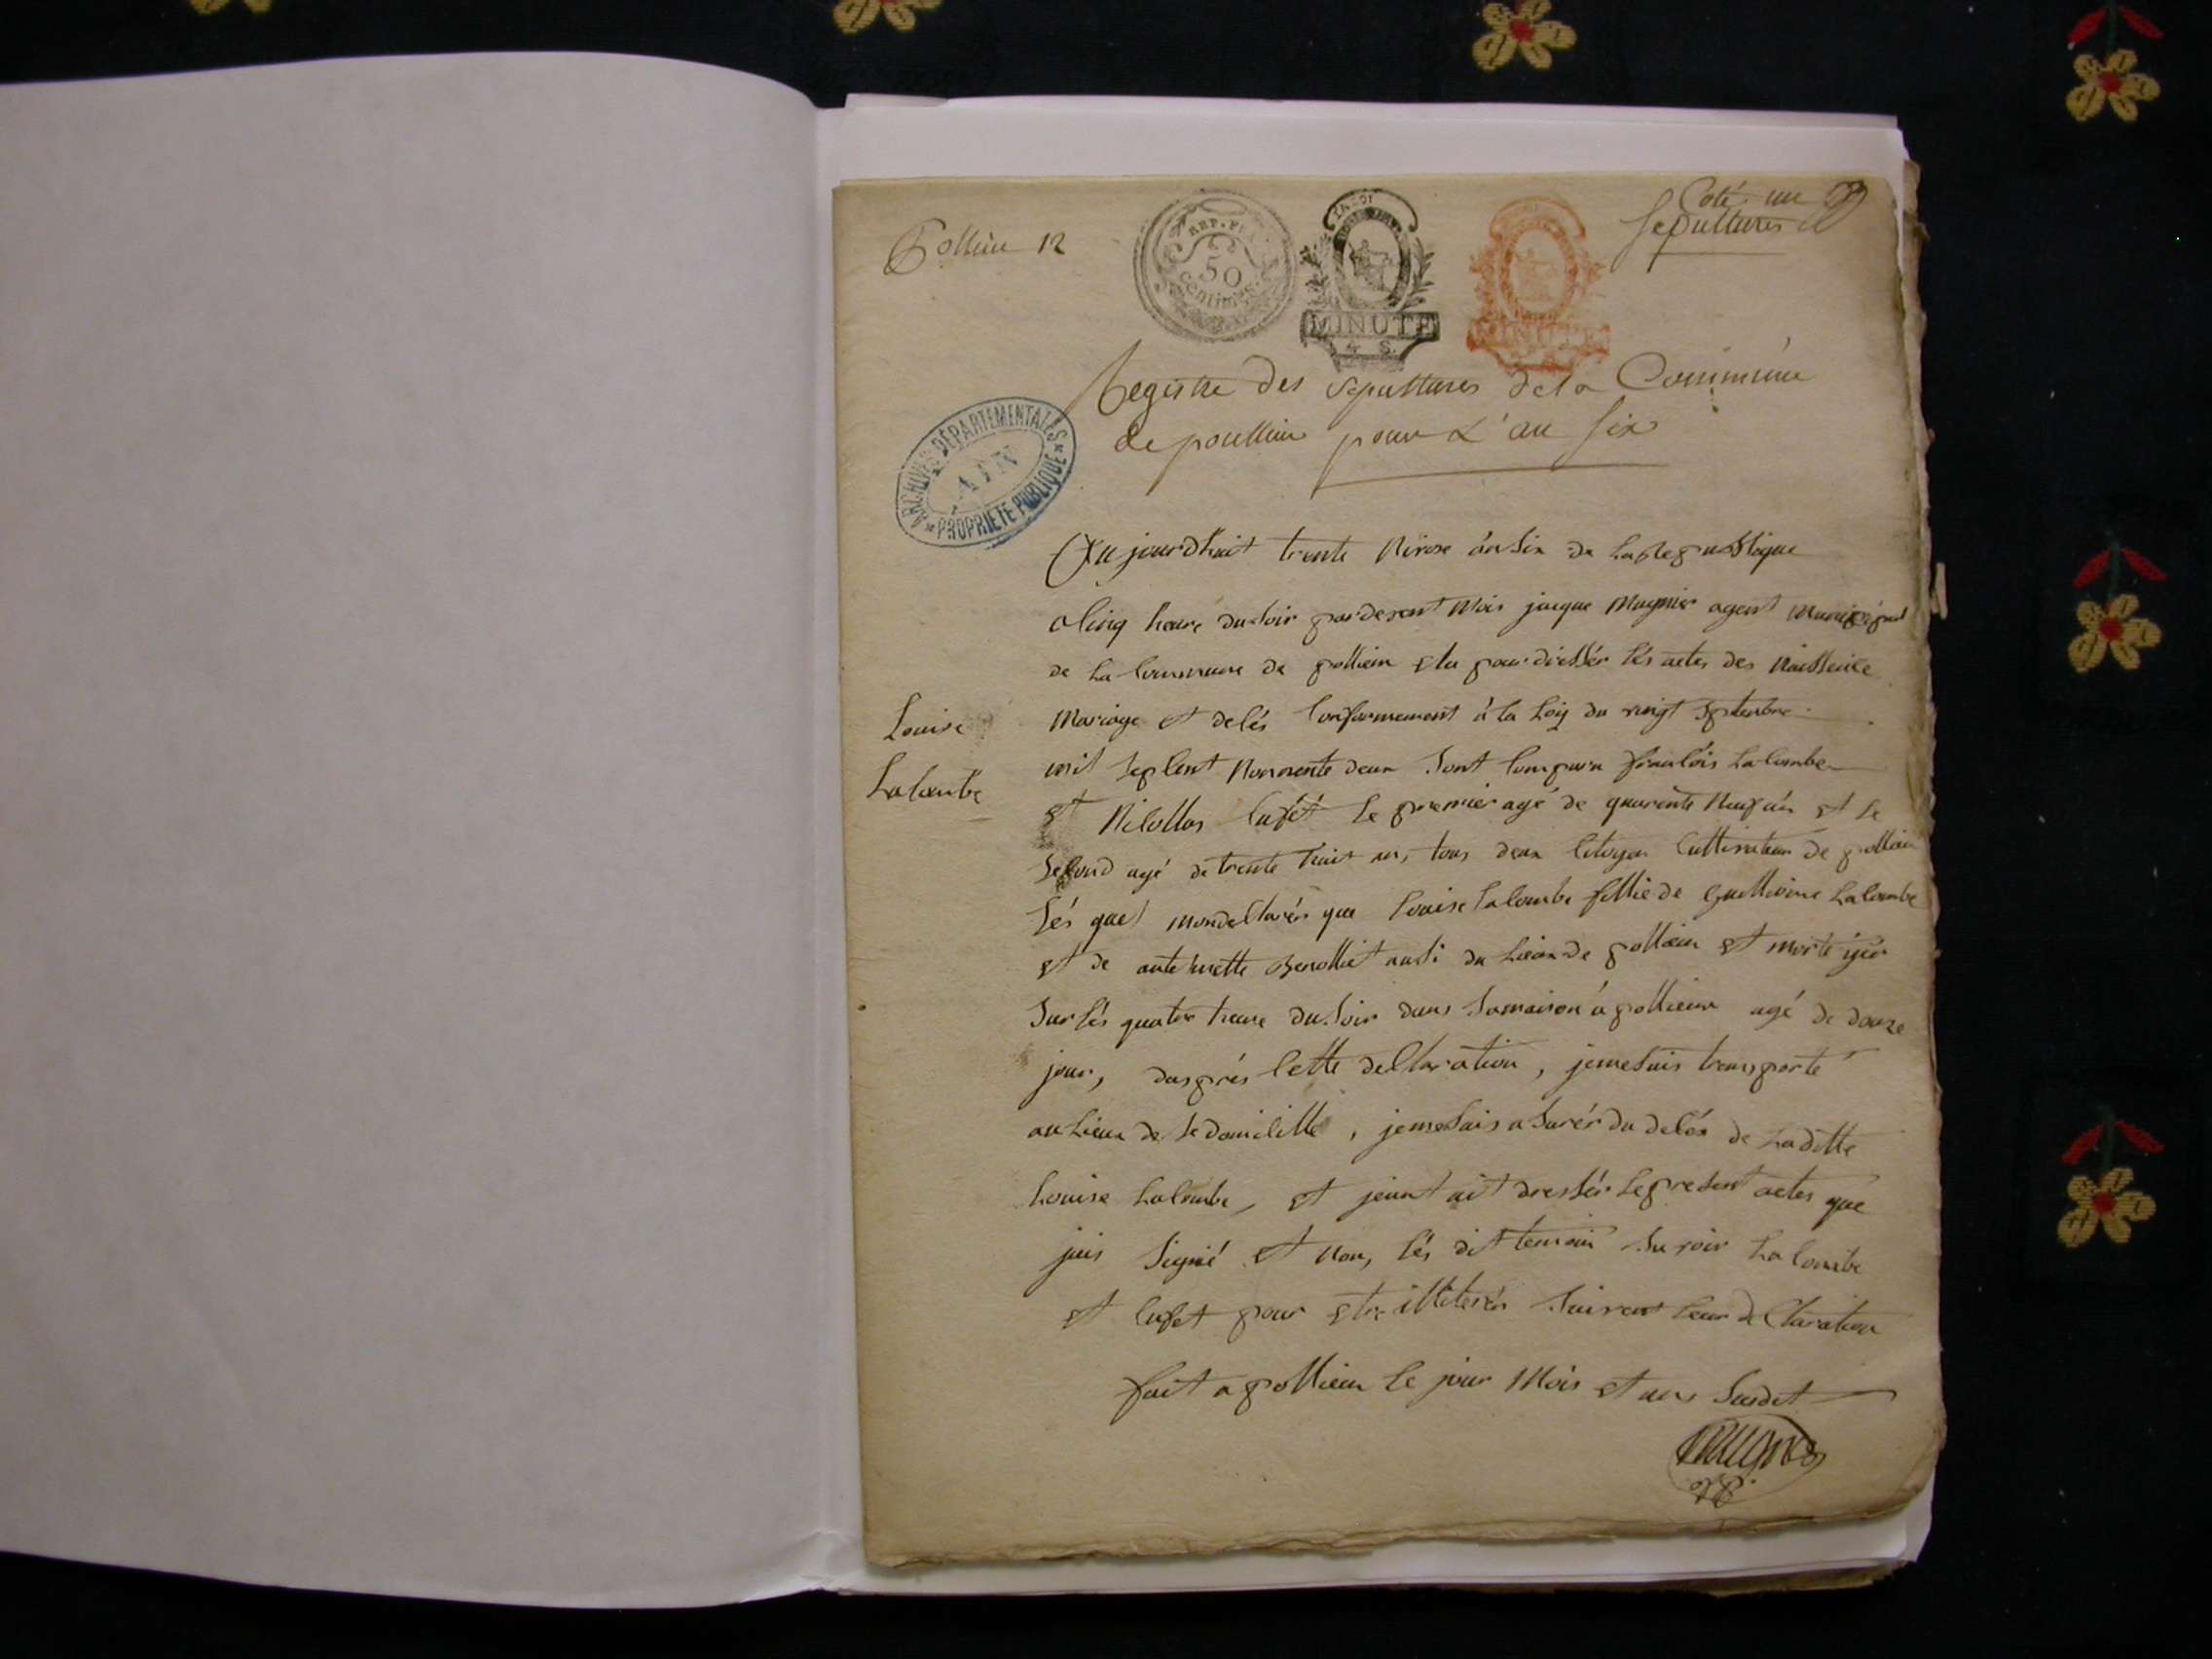 Pollieu 12
REP. FRA.
50
Centimes
LA LOI
MINUTE
4 S.
MINUTE
Coté un
Sepultures
Registre des sepultures de la Commune
de poullieu pour L'an six
ARCHIVES DÉPARTEMENTALES
AIN
PROPRIÉTÉ PUBLIQUE
Aujourdhuit trente Nivose ánsix de La Republique
a Cinq heure du soir pardevent Mois jacque Mugnier agent Municipal
de La Commune de pollieu elu pour dressér lés actes des Naissence
Mariage et delés Conformement á la Loy du vingt Septenbre
Louise
Lacombe
mil Seplent Nonnente deux Sont Comparu franlois Lacombe
et Nicollas Cufét Le premier agé de quarente Neuf án et Le
Second agé de trente huit ans tous deux Citoyen Cultivateur de pollieu
Lés quel mondeclarér que Louise Lacombe fillie de Guillieme Lacombe
et de antehuette ausi du Lieux de pollieu et morte yér
Sur lés quatre heure du Soir dans Samaison á pollieu agé de douze
jour, daprés Cette declaration, jemesuis transporté
au Lieux de Se domicille, jemesuis asurér du delés de Laditte
Louise Lacombe, et jeant ait dressér Lepresent actes que
jais Signié et Non, lés dit temoin Savoir Lacombe
et Cufet pour etre illiterér Suivent Leur declaration
fait a pollieu Le jour Mois et ans Susdit
Mugnier